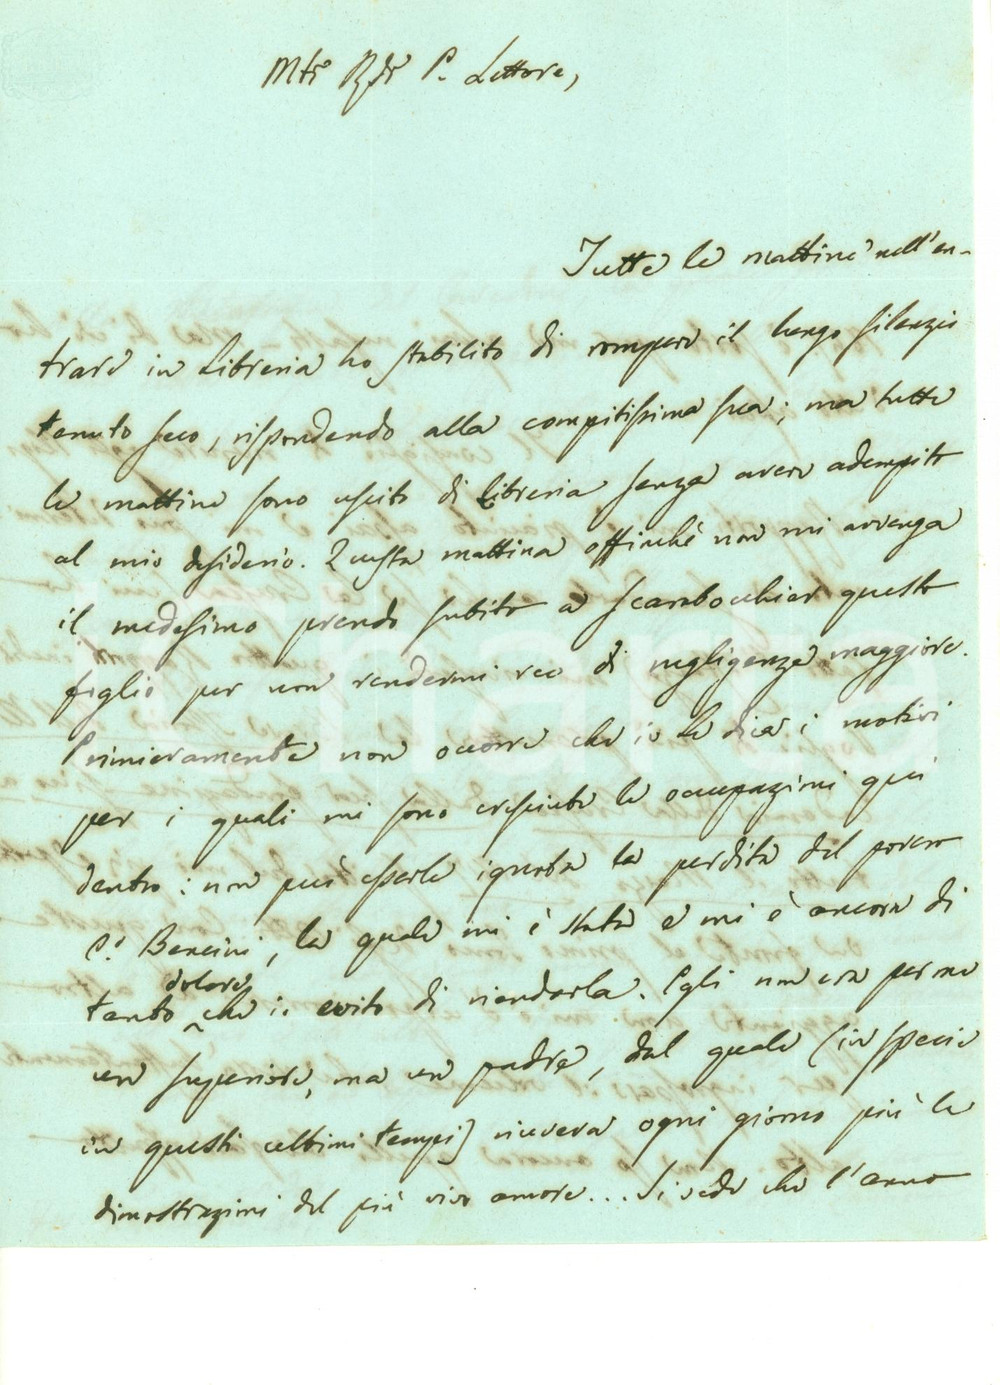 Mto Rdo P. Lettore,
Tutte le mattine nell'en-
trare in Libreria ho stabilito di rompere il lungo silenzio
tenuto seco, rispondendo alla compitissima sua; ma tutte
le mattine sono uscito di Libreria senza avere adempito
al mio desiderio. Questa mattina affinchè non mi avvenga
il medesimo prendo subito a scarabocchiar questo
foglio per non rendermi reo di negligenza maggiore.
Primieramente non occorre che io Le dica i motivi
per i quali mi sono cresciute le occupazioni qui
dentro: non può esserle ignota la perdita del povero
P. Bencini, la quale mi è stata e mi è ancora di
tanto dolore che io evito di ricordarla. Egli non era per me
un superiore, ma un padre, dal quale (in specie
in questi ultimi tempi) riceveva ogni giorno più le
dimostrazioni del più vivo amore... Si vede che l'anno